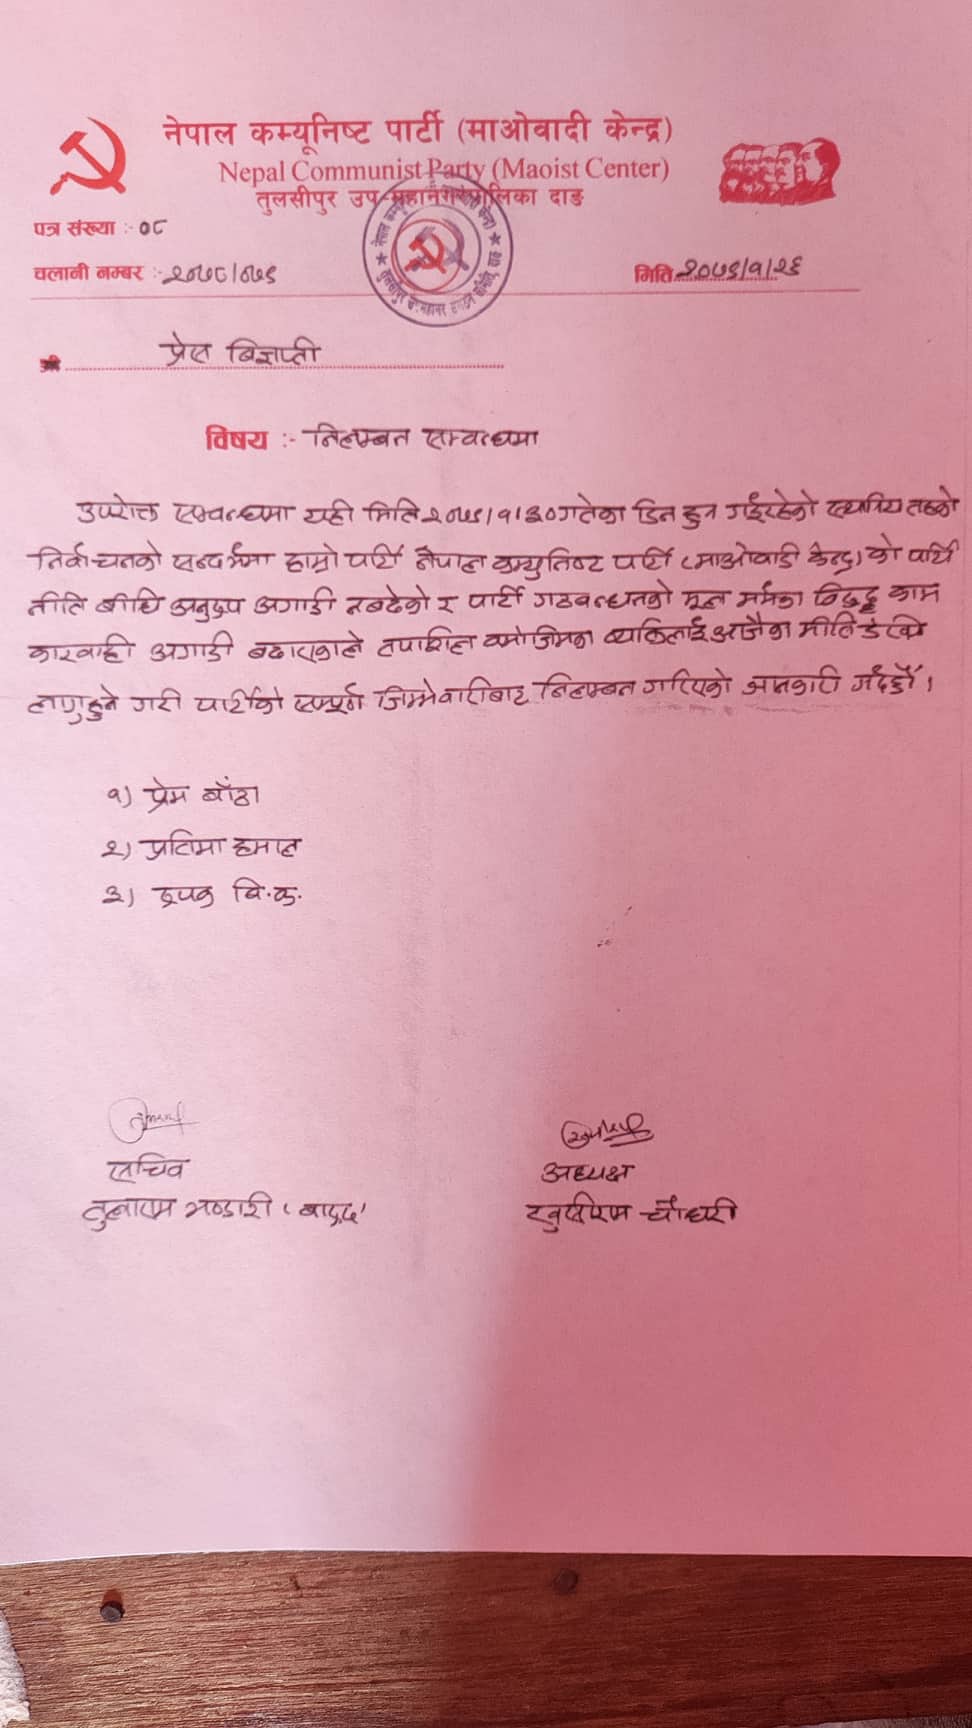 नेपाल कम्यूनिष्ट पार्टी (माओवादी केन्द्र)
Nepal Communist Party (Maoist Center)
तुलसीपुर उप-महानगरपालिका दाङ
पत्र संख्या :- ०८
चलानी नम्बर :- २०७८/०७९
मिति २०७९/१/२६
प्रेस बिज्ञप्ती
विषय :- निलम्बन सम्वन्धमा
उपरोक्त सम्वन्धमा यही मिति २०७९/१/३० गतेका दिन हुन गईरहेको स्थानिय तहको
निर्वाचनको सन्दर्भमा हाम्रो पार्टी नेपाल कम्युनिष्ट पार्टी (माओवादी केन्द्र) को पार्टी
नीति बीधि अनुरुप अगाडी नबढेको र पार्टी गठवन्धनको मूल मर्मका विरुद्ध काम
कारवाही अगाडी बढाएकाले तपाशिल वमोजिमका व्यक्तिलाई आजैका मीति देखि
लागुहुने गरी पार्टीको सम्पूर्ण जिम्मेवारीबाट निलम्बन गरिएको जानकारी गर्दछौं ।
१) प्रेम बाँठा
२) प्रतिमा हमाल
३) रुपक बि.क.
सचिव
अध्यक्ष
तुलाराम भण्डारी (बारुद)
खुसीराम चौधरी